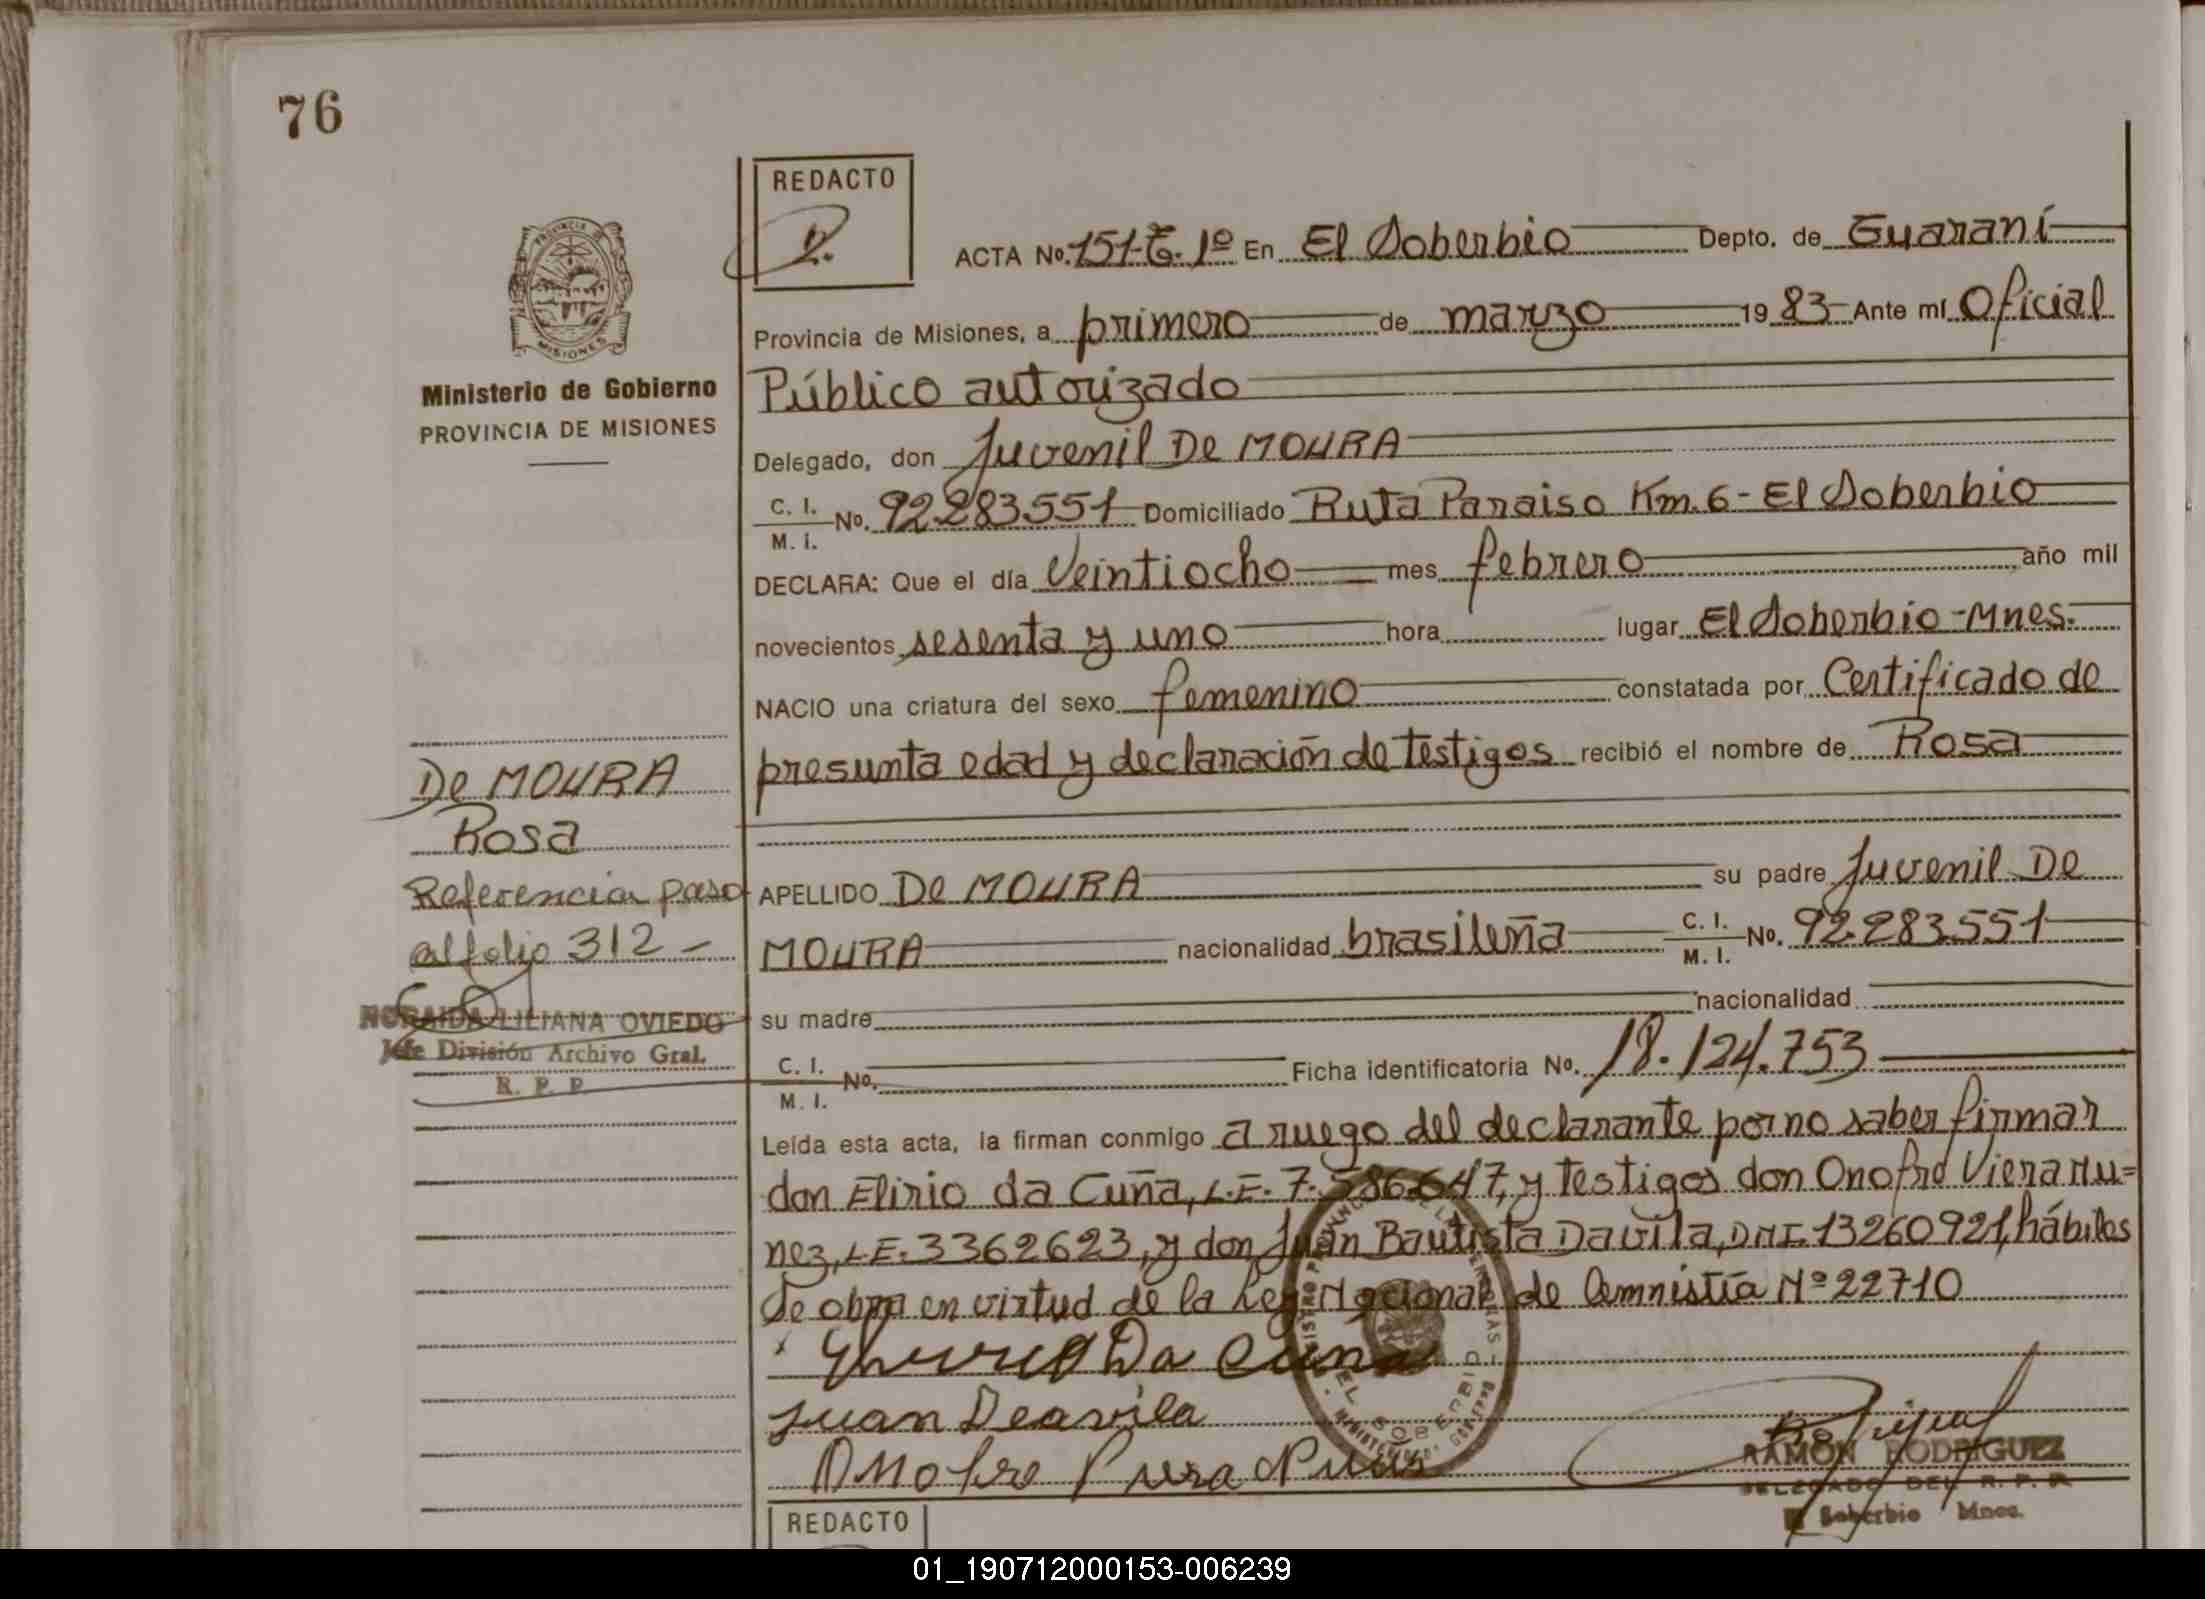 76
REDACTO
D.
ACTA No. 151-T. 1º En El Soberbio Depto. de Guaraní
Provincia de Misiones, a primero de marzo 1983 Ante mí Oficial
Público autorizado
Delegado, don Juvenil De MOURA
C. I.
M. I. No. 92.283.551 Domiciliado Ruta Paraiso Km. 6 - El Soberbio
DECLARA: Que el día Veintiocho mes febrero año mil
novecientos sesenta y uno hora lugar El Soberbio - Mnes.
NACIO una criatura del sexo femenino constatada por Certificado de
presunta edad y declaración de testigos recibió el nombre de Rosa
APELLIDO De MOURA su padre Juvenil De
MOURA nacionalidad brasileña C. I.
M. I. No. 92.283.551
su madre nacionalidad
C. I.
M. I. No. Ficha identificatoria No. 18.124.753
Leída esta acta, la firman conmigo a ruego del declarante por no saber firmar
don Elirio da Cuña, L.E. 7.586.647, y testigos don Onofre Viera Nu=
nez, L.E. 3362623, y don Juan Bautista Davila, DNI. 13260921, hábiles
Se obra en virtud de la Ley Nacional de Amnistía Nº 22710
Da Cuna
Juan Deavila
Onofre
RAMON RODRIGUEZ
DELEGADO DEL R. P. P.
El Soberbio Mnes.
EL SOBERBIO
REDACTO
PROVINCIA DE
MISIONES
Ministerio de Gobierno
PROVINCIA DE MISIONES
De MOURA
Rosa
Referencia paso
al folio 312 -
NORAIDA LILIANA OVIEDO
Jefe División Archivo Gral.
R. P. P.
01_190712000153-006239